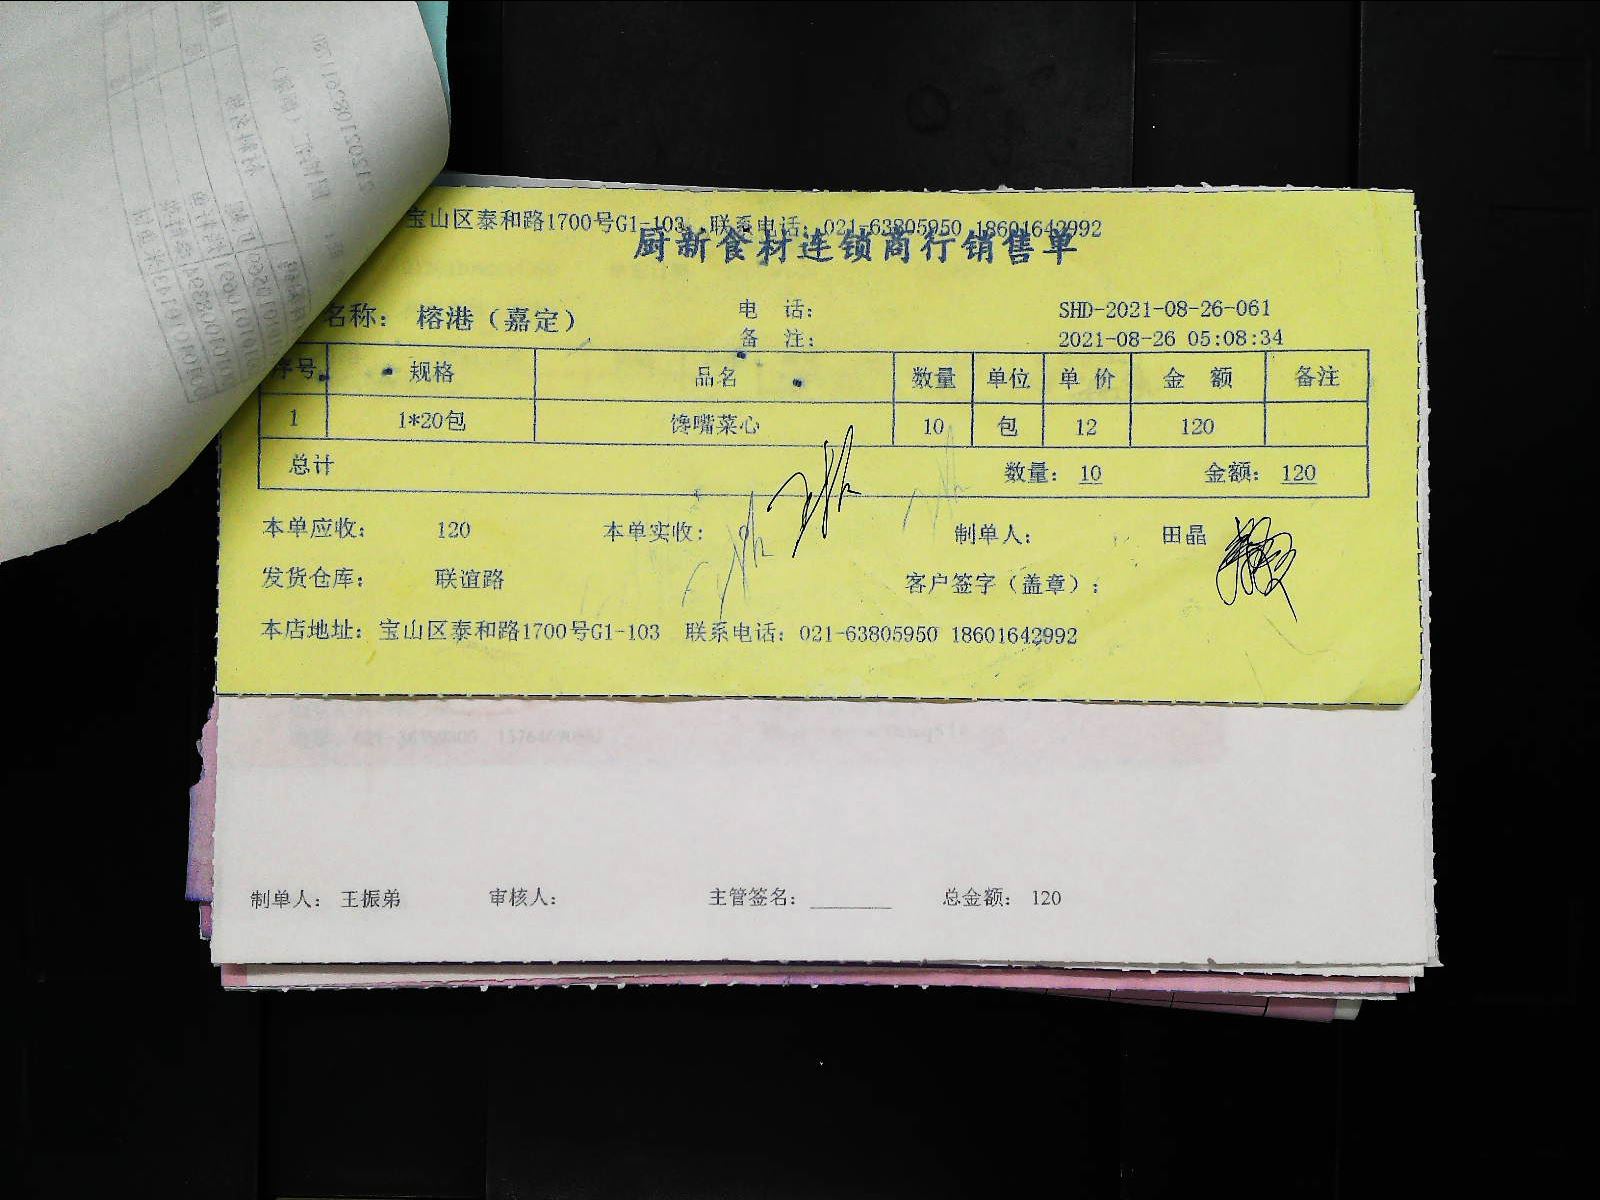 宝山区泰和路1700号G1-103 联系电话: 021-63805950 18601642992
厨新食材连锁商行销售单
名称: 榕港（嘉定） 电 话: SHD-2021-08-26-061
备 注: 2021-08-26 05:08:34
序号 规格 品名 数量 单位 单价 金额 备注
1 1*20包 馋嘴菜心 10 包 12 120
总计 数量: 10 金额: 120
本单应收: 120 本单实收: 制单人: 田晶
发货仓库: 联谊路 客户签字（盖章）:
本店地址: 宝山区泰和路1700号G1-103 联系电话: 021-63805950 18601642992
制单人: 王振弟 审核人: 主管签名: ________ 总金额: 120